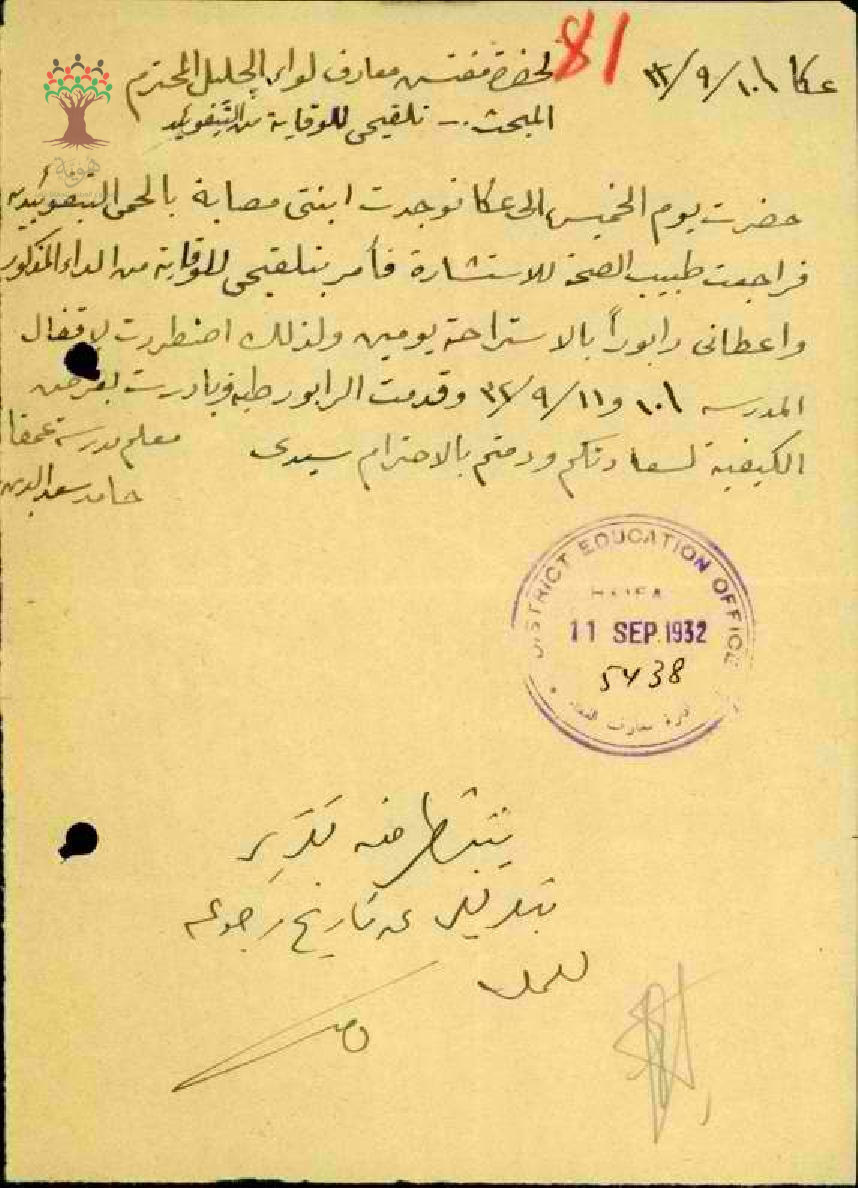 81
عكا ١٠/٩/٣٢
لحضرة مفتش معارف لواء الجليل المحترم
المبحث :- تلقيحي للوقاية من التيفوئيد
حضرت يوم الخميس الى عكا فوجدت ابنتي مصابة بالحمى التيفوئيديه
فراجعت طبيب الصحة للاستشارة فأمر بتلقيحي للوقاية من الداء المذكور
واعطاني رابوراً بالاستراحة يومين ولذلك اضطررت لاقفال
المدرسه ١٠ و ١١/٩/٣٢ وقدمت الرابور طيه وبادرت بعرض
الكيفية لسعادتكم ودمتم بالاحترام سيدي
معلم مدرسة عمقا
حامد سعد الدين
DISTRICT EDUCATION OFFICE
HAIFA
11 SEP 1932
5438
معارف
ينتظر منه
عن تاريخ رجوعه
للعمل
هوية